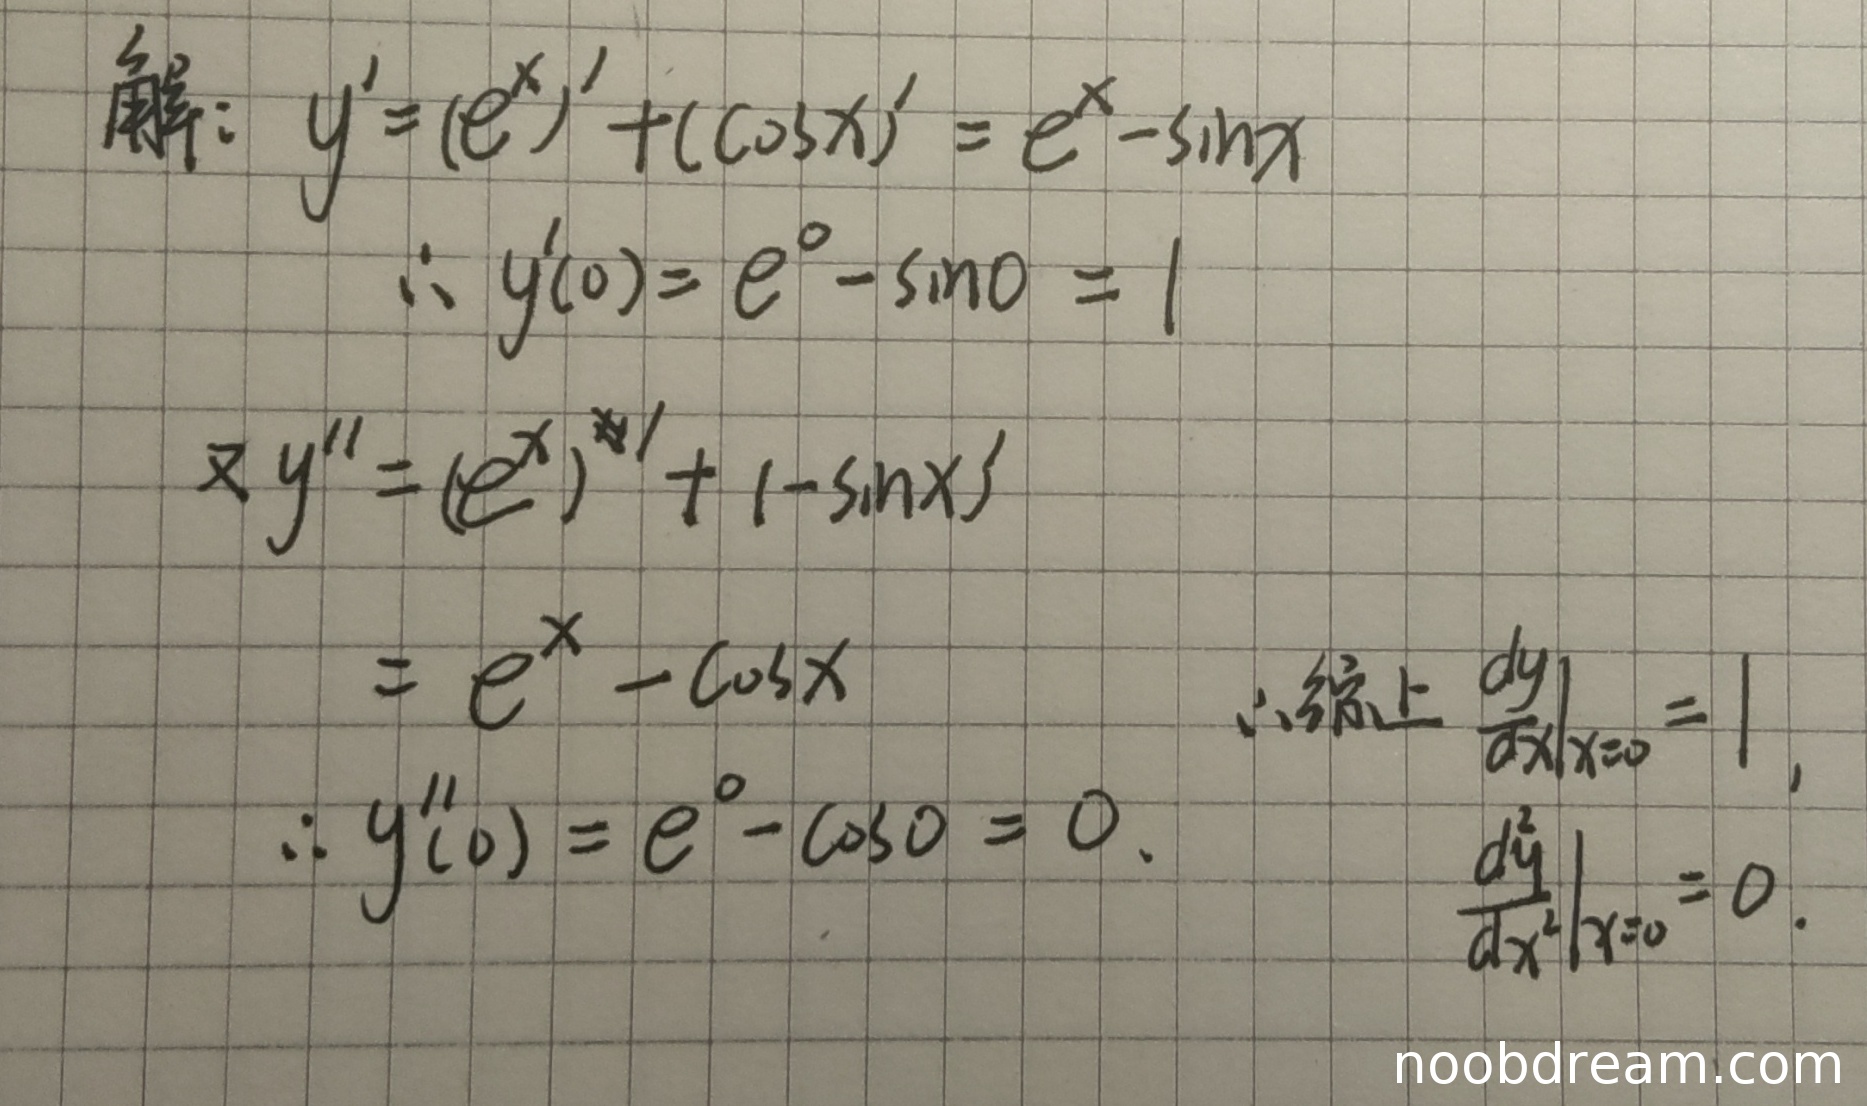 解: y' = (e^x)' + (cosx)' = e^x - sinx
∴ y'(0) = e^0 - sin0 = 1
又 y'' = (e^x)' + (-sinx)'
= e^x - cosx
∴ y''(0) = e^0 - cos0 = 0.
∴ 综上 dy/dx|x=0 = 1,
d²y/dx²|x=0 = 0.
noobdream.com